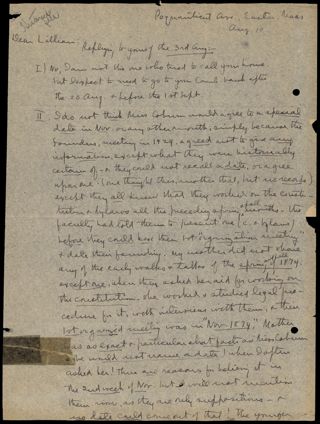 Poquanticut Ave., Easton, Mass
Aug. 10
Dear Lillian: Replying to yours of the 3rd any:—
I) No, I am not the one who tried to call your house
but I expect to need to go to your Canal bank after
the 20 Aug. & before the 1st Sept.
II I do not think Miss Coburn would agree to a special
date in Nov. or any other month, simply because the
Founders, meeting in 1924, agreed not to give any
information, except what they were historically
certain of — & they could not recall a date, or agree
upon one. (one thought this, another that, but no records)
except they all knew that they worked on the consti-
tution & by laws all the preceding spring & fall months. The
faculty had told them to present one (c. & by laws)
before they could have their 1st "organization meeting"
& date their founding. My mother did not share
any of the early walks & talks of the spring & fall 1874,
except one when they asked her aid for working on
the Constitution. She worked & studied legal pro-
cedure for it, with interviews with them, & their
1st organized meeting was in Nov. 1874." Mother
was as exact & particular about facts as Miss Coburn
she would not name a date! when I often
asked her! There are reasons for believing it in
the 2nd week of Nov. but I will not mention
them now, as they are only suppositions — &
no date could come out of that — the younger